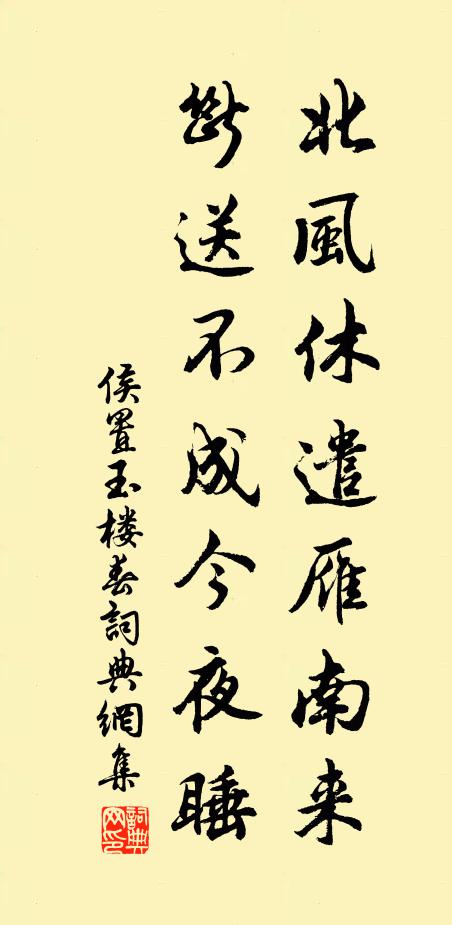 北風休遣雁南来
斷送不成今夜睡
侯置玉楼春詞典網集
詞典网印